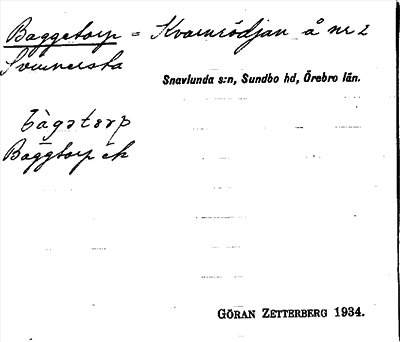 Baggetorp = Kvarnrödjan å nr 2
Svennersta
Snavlunda s:n, Sundbo hd, Örebro län.
bàgətorp
Baggtorp ek
GÖRAN ZETTERBERG 1934.